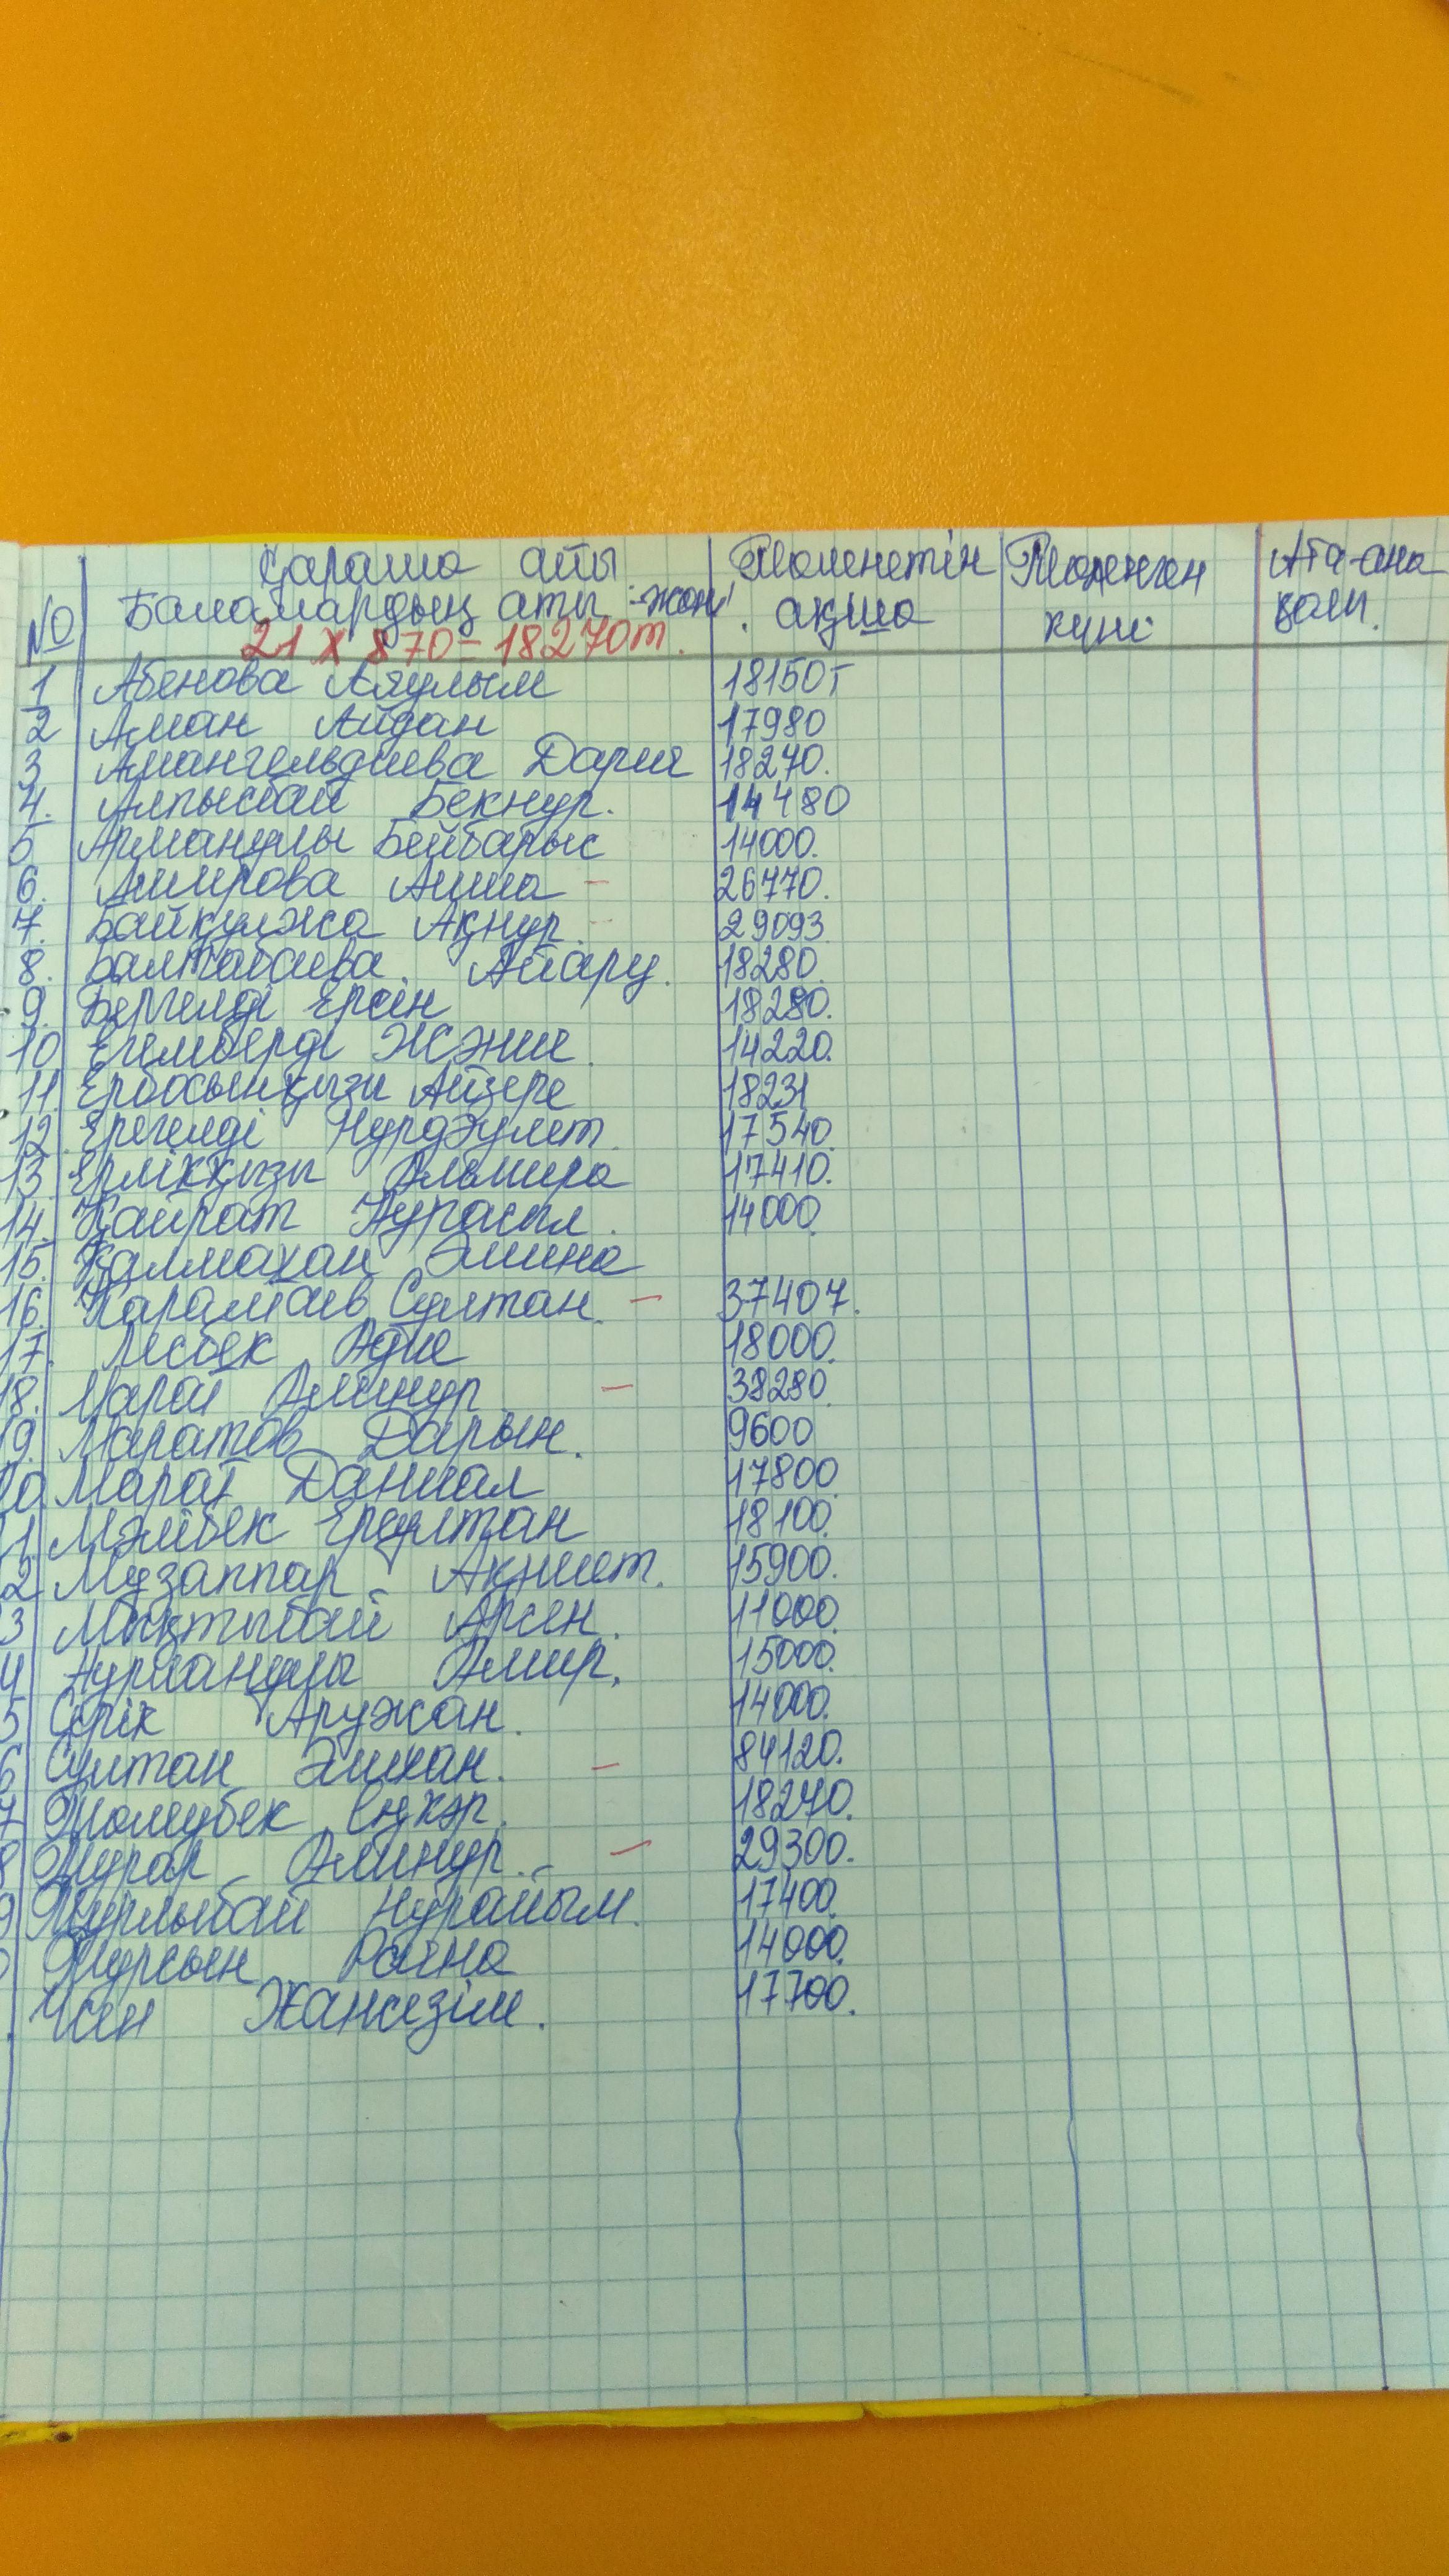 Қараша айы
№ Балалардың аты-жөні Төленетін ақша Төленген күні Ата-ана қолы.
21 х 870 = 18270т.
1 Абенова Аяулым 18150т
2 Аман Айдан 17980
3 Амангельдиева Дария 18270.
4. Алпысбай Бекнур. 14480
5 Арманұлы Бейбарыс 14000.
6. Амирова Аиша - 26770.
7. Байқулжа Ақнұр - 29093.
8. Балтабаева Айару. 18280.
9. Бергелді Ерсін 18280.
10 Егемберді Жәния 14220.
11. Ербосынқызы Айзере 18231
12. Ергелді Нұрдәулет 17540.
13. Ерлікқызы Альмира 17410.
14. Қайрат Нұрасыл. 14000.
15. Қалмахан Әмина
16. Караев Султан. - 37407.
17. Лесбек Адия 18000.
18. Марай Аминур - 38280.
19. Маратов Дарын. 9600
20 Марат Даниал 17800.
1. Мәлібек Ерсұлтан 18100.
2 Музаппар Ақниет. 15900.
3 Мықтыбай Арсен. 11000.
4 Амир. 15000.
5 Серік Аружан. 14000.
6 Султан Әлихан. - 84120.
7 Төлеубек Еңлік 18270.
8 Тұрар Аминур. - 29300.
9 Тұрлыбай Нұрайым. 17400.
0 Тұрсын Раяна 14000.
. Үсен Жансезім. 17700.